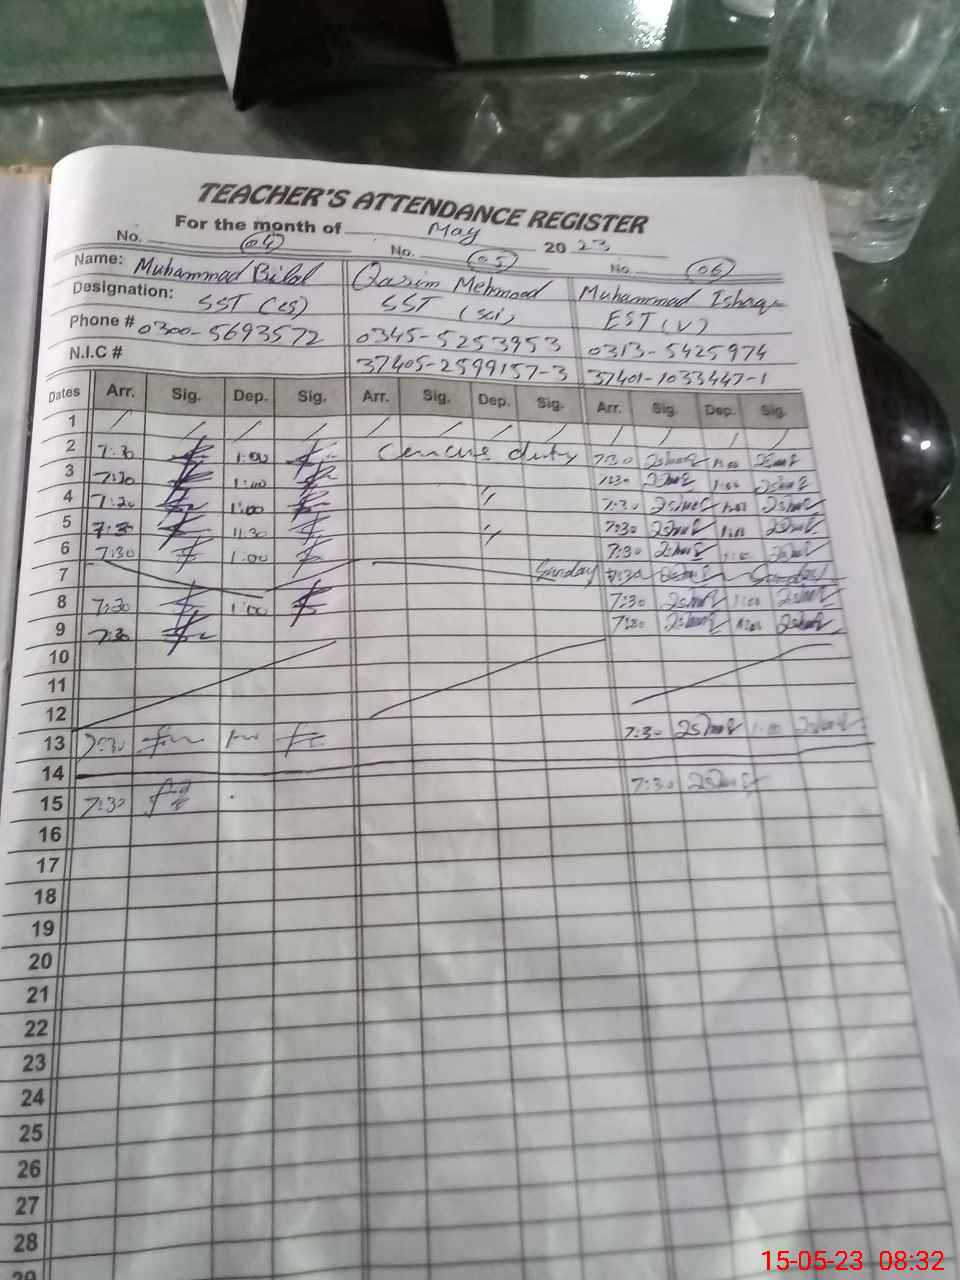 TEACHER'S ATTENDANCE REGISTER
For the month of May 2023
No. 04 No. 05 No. 06
Name: Muhammad Bilal Qasim Mehmood Muhammad Ishaque
Designation: SST (cs) SST (sci) EST (V)
Phone # 0300-5693572 0345-5253953 0313-5425974
N.I.C # 37405-2599157-3 37401-1033447-1
Dates Arr. Sig. Dep. Sig. Arr. Sig. Dep. Sig. Arr. Sig. Dep. Sig.
1
2 7:30 1:00 duty 7:30 1:00
3 7:30 1:00 7:30 1:00
4 7:20 1:00 " 7:30 1:00
5 7:30 11:30 " 7:30
6 7:30 1:00 7:30 1:00
7 Sunday 7:30 Sunday
8 7:30 1:00 7:30 1:00
9 7:30 7:30
10
11
12
13 7:30 7:30 1:00
14
15 7:30 7:30
16
17
18
19
20
21
22
23
24
25
26
27
28
29
15-05-23 08:32